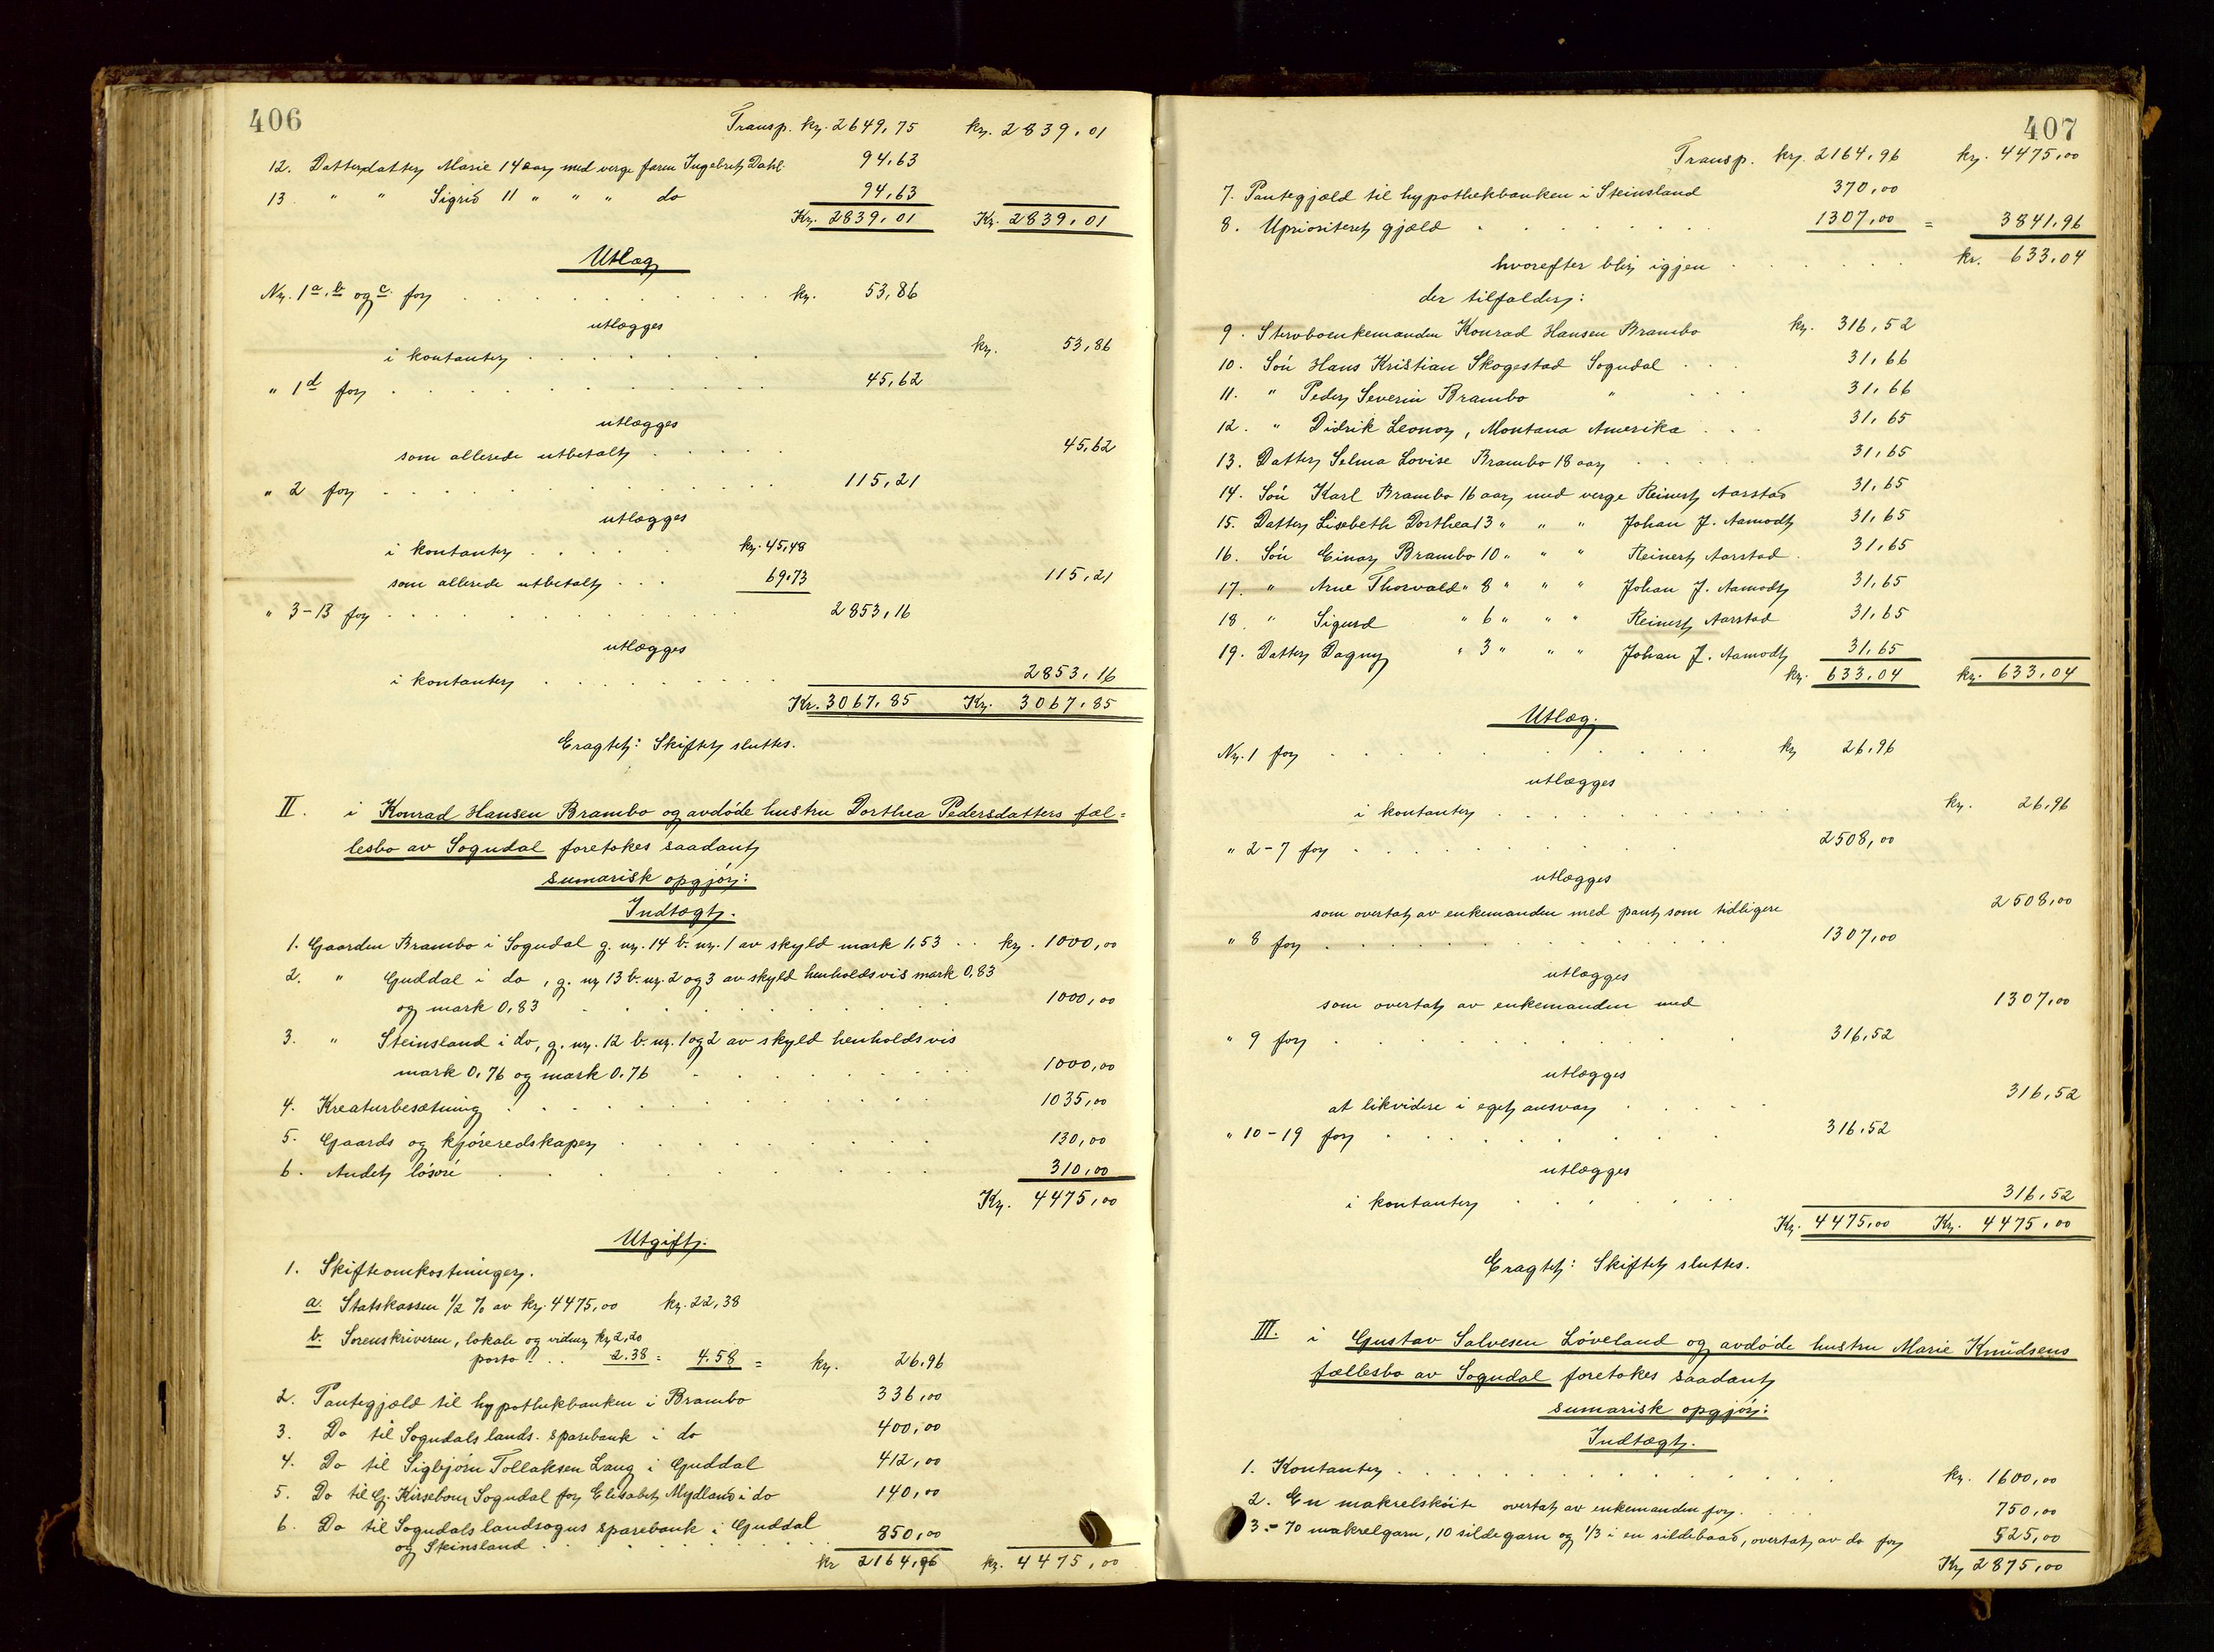 406
Transp. kr. 2649,75 kr. 2839,01
12. Datterdatter Marie 14 aar med verge faren Ingebret Dahl 94,63
13. " " Sigrid 11 " " " do 94,63
Kr. 2839,01 Kr. 2839,01
Utlæg
Nr. 1 a, b og c. for kr. 53,86
utlægges
i kontanter kr. 53,86
" 1 d for 45,62
utlægges
som allerede utbetalt 45,62
" 2 for 115,21
utlægges
i kontanter kr. 45,48
som allerede utbetalt 69,73 115,21
" 3-13 for 2853,16
utlægges
i kontanter 2853,16
Kr. 3067,85 Kr. 3067,85
Eragtet: Skiftet sluttes.
II. i Konrad Hansen Brambo og avdøde hustru Dorthea Pedersdatters fæl=
lesbo av Sogndal foretokes saadant
sumarisk opgjør:
Indtægt.
1. Gaarden Brambo i Sogndal g. nr. 14 b. nr. 1 av skyld mark 1,53 kr. 1000,00
2. " Guddal i do, g. nr. 13 b. nr. 2 og 3 av skyld henholdsvis mark 0,83
og mark 0,83 1000,00
3. " Steinsland i do, g. nr. 12 b. nr. 1 og 2 av skyld henholdsvis
mark 0,76 og mark 0,76 1000,00
4. Kreaturbesætning 1035,00
5. Gaards og kjøreredskaper 130,00
6. Andet løsøre 310,00
Kr. 4475,00
Utgift.
1. Skifteomkostninger.
a. Statskassen 1/2 % av kr. 4475,00 kr. 22,38
b. Sorenskriveren, lokale og vidner kr. 2,20
porto 2.38 = 4.58 = kr. 26,96
2. Pantegjæld til hypothekbanken i Brambo 336,00
3. Do til Sogndals lands. sparebank i do 400,00
4. Do til Sigbjørn Tollaksen Laug i Guddal 412,00
5. Do til G. Kirsebom Sogndal for Elisabet Mydland i do 140,00
6. Do til Sogndals landsogns sparebank i Guddal
og Steinsland 850,00
kr 2164,96 kr. 4475,00
407
Transp. kr. 2164,96 kr. 4475,00
7. Pantegjæld til hypothekbanken i Steinsland 370,00
8. Uprioritert gjæld 1307,00 = 3841,96
hvorefter blir igjen kr. 633,04
der tilfalder:
9. Stervboenkemanden Konrad Hansen Brambo kr. 316,52
10. Søn Hans Kristian Skogestad Sogndal 31,66
11. " Peder Severin Brambo " 31,66
12. " Didrik Leonor, Montana Amerika 31,65
13. Datter Selma Lovise Brambo 18 aar 31,65
14. Søn Karl Brambo 16 aar med verge Reinert Aarstad 31,65
15. Datter Lisebeth Dorthea 13 " " " Johan J. Aamodt 31,65
16. Søn Einar Brambo 10 " " " Reinert Aarstad 31,65
17. " Arne Thorvald " 8 " " " Johan J. Aamodt 31,65
18. " Sigurd " 6 " " " Reinert Aarstad 31,65
19. Datter Dagny " 3 " " " Johan J. Aamodt 31,65
kr. 633,04 kr. 633,04
Utlæg.
Nr. 1 for kr 26,96
utlægges
i kontanter kr. 26,96
" 2-7 for 2508,00
utlægges
som overtat av enkemanden med pant som tidligere 2508,00
" 8 for 1307,00
utlægges
som overtat av enkemanden med 1307,00
" 9 for 316,52
utlægges
at likvidere i eget ansvar 316,52
" 10-19 for 316.52
utlægges
i kontanter 316,52
Kr. 4475,00 Kr. 4475,00
Eragtet: Skiftet sluttes.
III. i Gustav Salvesen Løveland og avdøde hustru Marie Knudsens
fællesbo av Sogndal foretokes saadant
sumarisk opgjør:
Indtægt.
1. Kontanter kr. 1600,00
2. En makrelskøite overtat av enkemanden for 750,00
3. - 70 makrelgarn, 10 sildegarn og 1/3 i en sildebaad, overtat av do for 525,00
Kr 2875,00